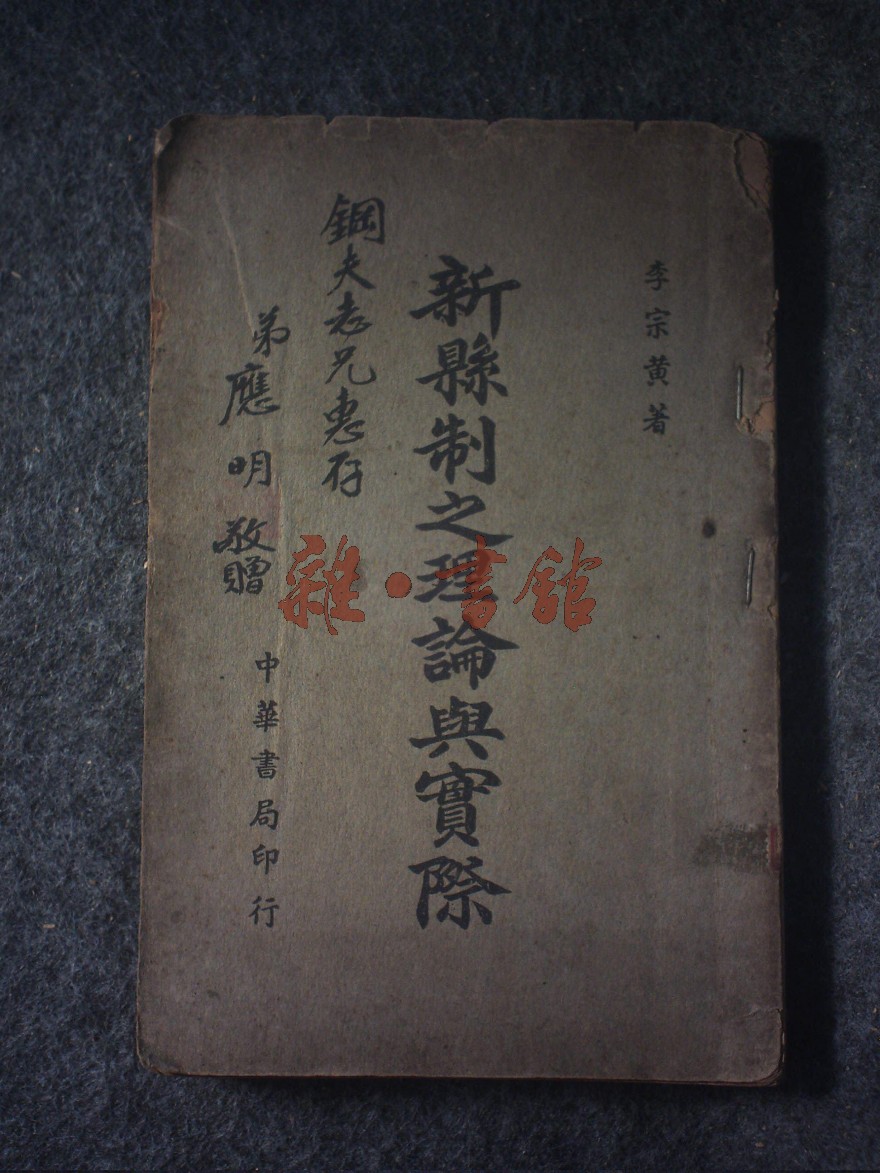 李宗黄著
新縣制之理論與實際
鋼夫老兄惠存
弟應明敬贈
中華書局印行
雜·書館